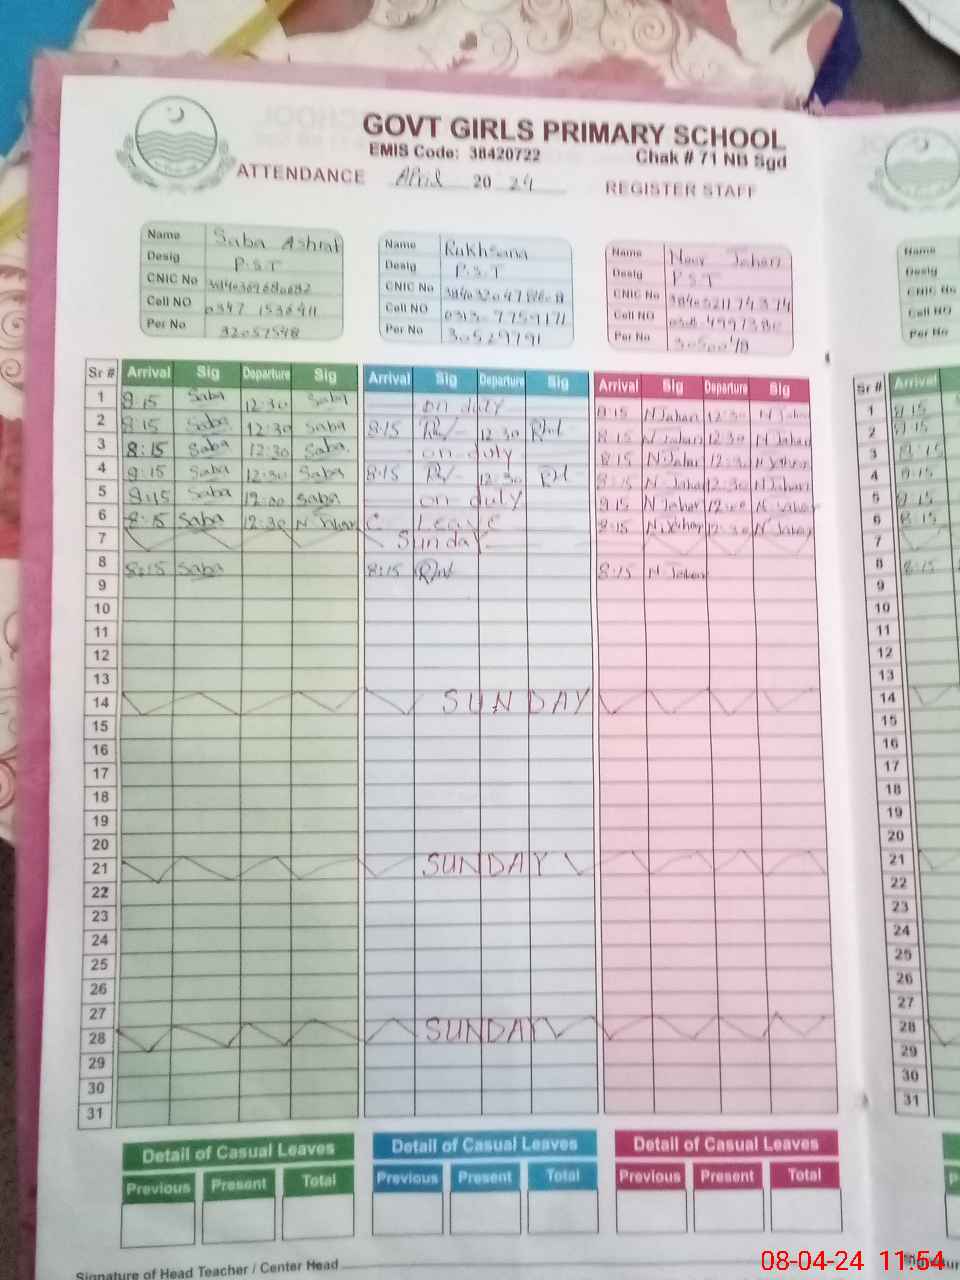 GOVT GIRLS PRIMARY SCHOOL
EMIS Code: 38420722 Chak # 71 NB Sgd
ATTENDANCE April 20 24 REGISTER STAFF
Name Saba Ashraf
Desig P.S.T
CNIC No
Cell NO 0347
Per No 32057548
Name Rukhsana
Desig P.S.T
CNIC No
Cell NO 0313-7759171
Per No 30529791
Name Noor Jahan
Desig PST
CNIC No
Cell NO
Per No
Name
Desig
CNIC No
Cell NO
Per No
Sr # Arrival Sig Departure Sig Arrival Sig Departure Sig Arrival Sig Departure Sig Sr # Arrival
1 8:15 Saba 12:30 Saba on duty 8:15 N Jahan 12:30 N Jahan 1 8:15
2 8:15 Saba 12:30 Saba 8:15 12:30 8:15 N Jahan 12:30 N Jahan 2 8:15
3 8:15 Saba 12:30 Saba on duty 8:15 N Jahan 12:30 N Jahan 3 8:15
4 8:15 Saba 12:30 Saba 8:15 12:30 8:15 N Jahan 12:30 N Jahan 4
5 Saba 12:00 Saba on duty N Jahan 12:00 N Jahan 5
6 8:15 Saba 12:30 N Jahan C Leave 8:15 N Jahan 12:30 N Jahan 6 8:15
7 Sunday 7
8 8:15 Saba 8:15 8:15 N Jahan 8 8:15
9 9
10 10
11 11
12 12
13 13
14 SUNDAY 14
15 15
16 16
17 17
18 18
19 19
20 20
21 SUNDAY 21
22 22
23 23
24 24
25 25
26 26
27 27
28 SUNDAY 28
29 29
30 30
31 31
Detail of Casual Leaves Detail of Casual Leaves Detail of Casual Leaves
Previous Present Total Previous Present Total Previous Present Total
Signature of Head Teacher / Center Head
08-04-24 11:54